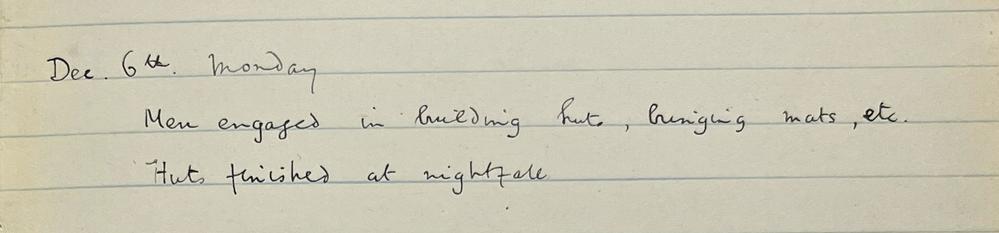 Dec. 6th. Monday
Men engaged in building huts, bringing mats, etc.
Huts finished at nightfall